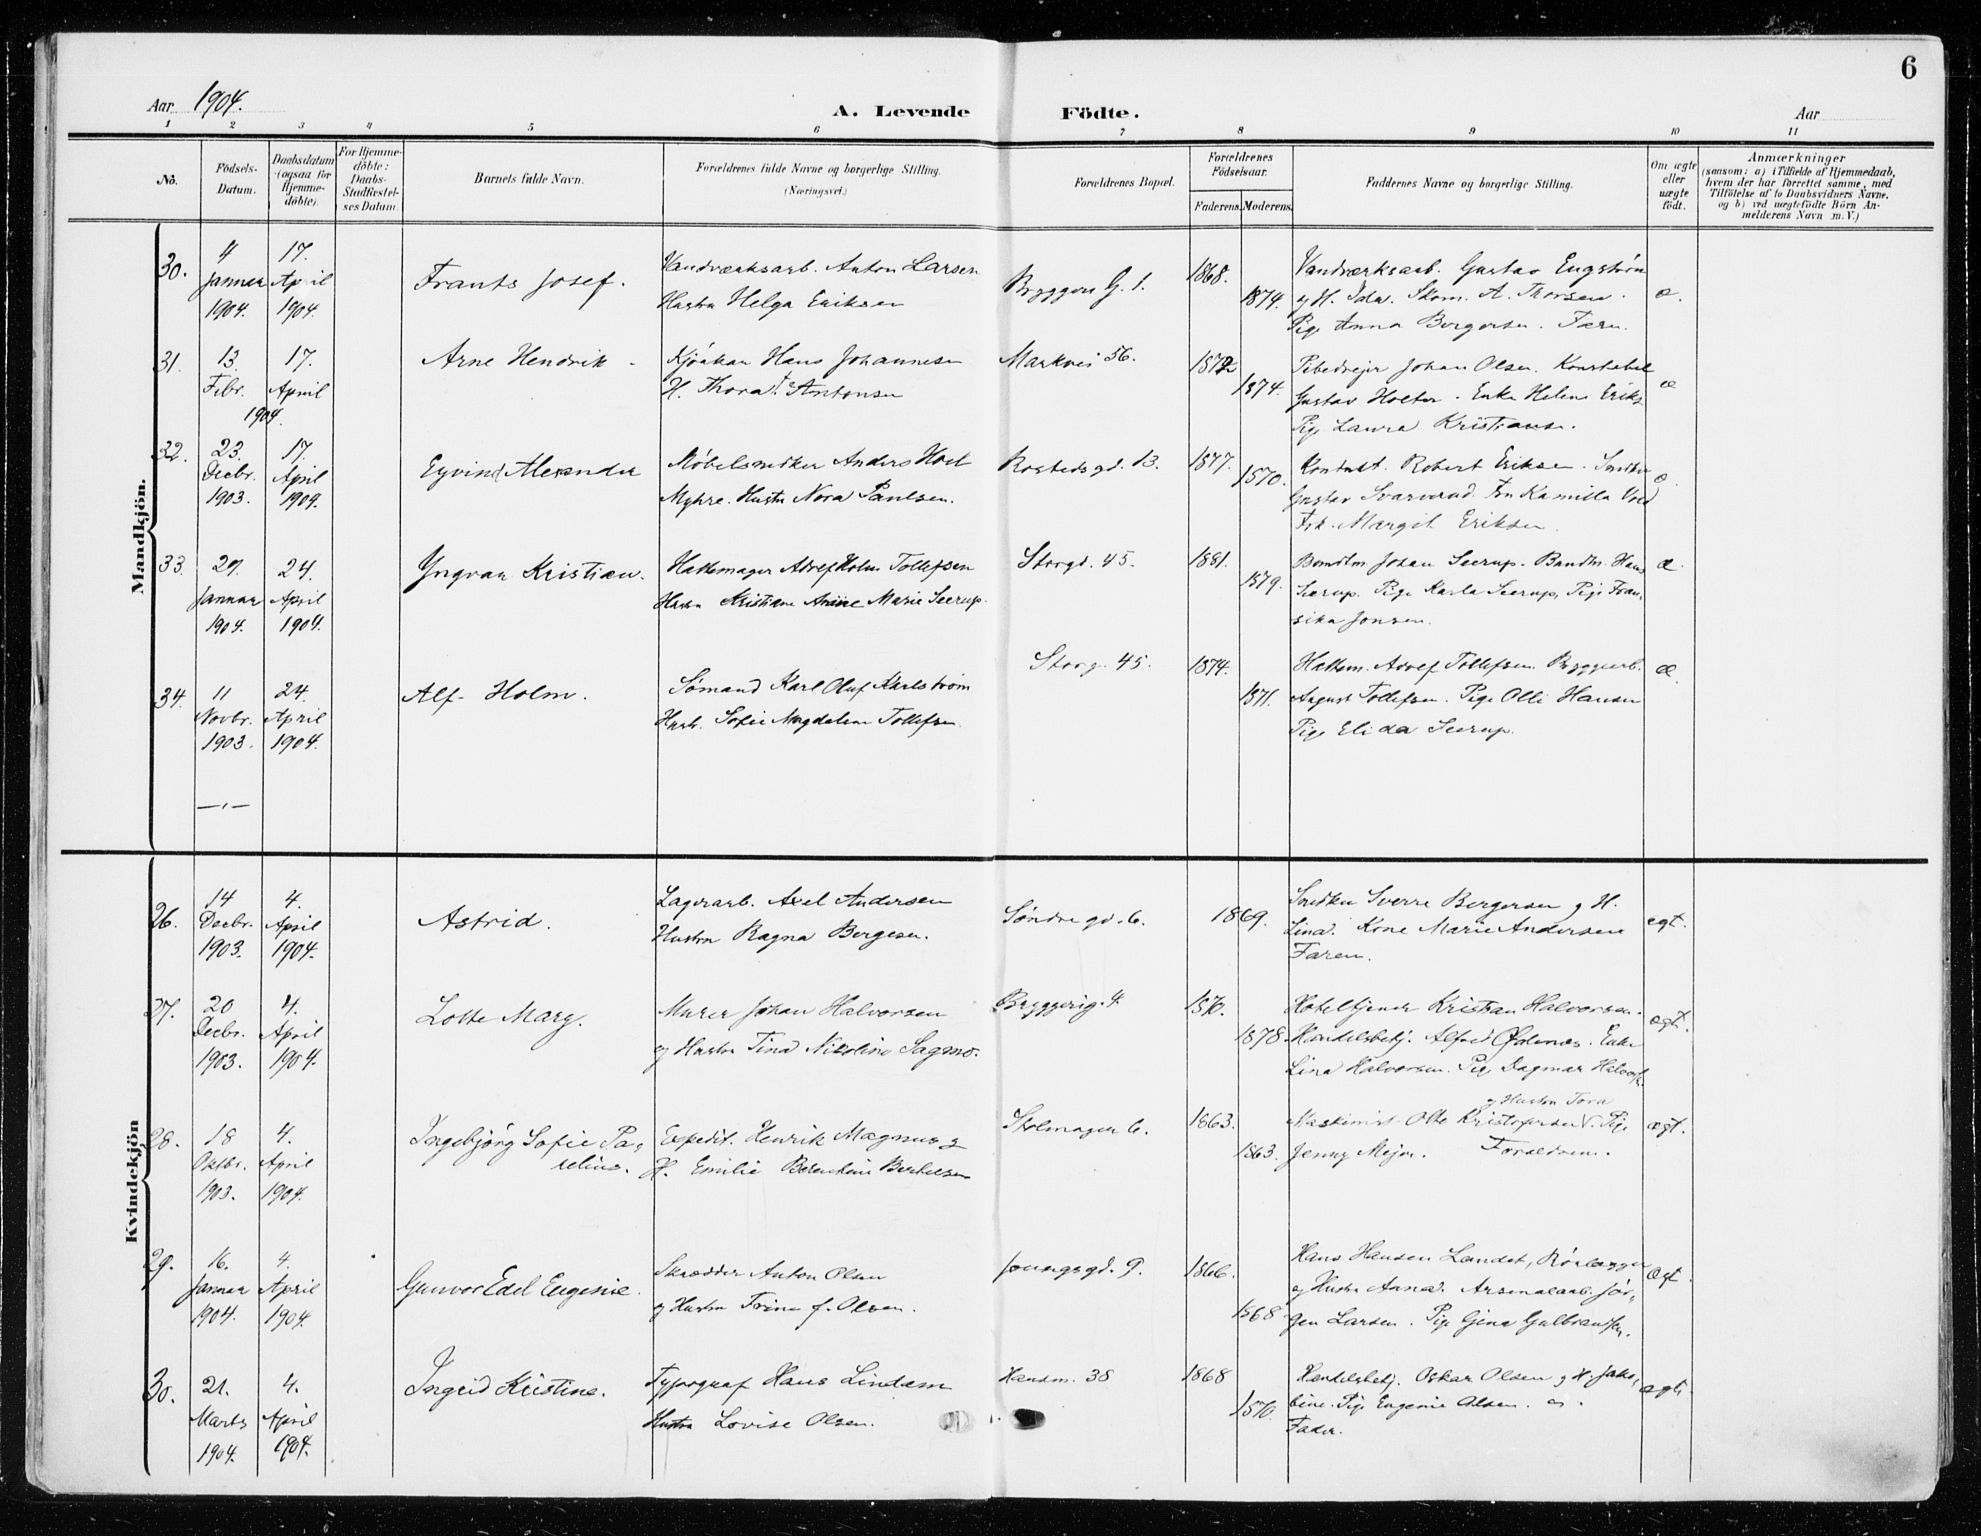 6
Aar 1904.
A. Levende Födte.
Aar
1 2 3 4 5 6 7 8 9 10 11
No.
Födsels-Datum.
Daabsdatum (ogsaa for Hjemme-döbte).
For Hjemme-döbte: Daabs-Stadfæstel-ses Datum.
Barnets fulde Navn.
Forældrenes fulde Navne og borgerlige Stilling. (Næringsvei.)
Forældrenes Bopæl.
Forældrenes Födselsaar.
Faderens. Moderens.
Faddernes Navne og borgerlige Stilling.
Om ægte eller uægte födt.
Anmærkninger
(saasom: a) i Tilfælde af Hjemmedaab, hvem der har forrettet samme, med Tilföielse af to Daabsvidners Navne, og b) ved uægtefödte Börn An-melderens Navn m. V.)
Mandkjön.
30. 4 Januar 1904. 17. April 1904. Frants Josef.
Vandværksarb. Anton Larsen
Hustru Helga Eriksen
Bryggeri G. 1. 1868. 1874.
Vandværksarb. Gustav Engström
og H. Ida. Skom. A. Thorsen.
Pige Anna Borgersen. Faren.
æ.
31. 13. Febr. 17. April 1904. Arne Hendrik
Hans Johannesen
H. Thora Antonsen
Markvei 56. 1872 1874.
Johan Olsen. Konstabel
Gustav Holter. Enke Helene Eriks.
Pige Laura Kristianse.
æ
32. 23. Decbr. 1903. 17. April 1904. Eyvind Alexander
Möbelsnedker Anders Hoel
Myhre. Hustru Nora Paulsen.
Rostedsgd. 13. 1877. 1870.
Kondukt. Robert Eriksen. Snedker
Gustav Svarverud. Fru Kamilla Vold
Frk. Margit Eriksen.
æ.
33. 29. Januar 1904. 24. April 1904. Yngvar Kristian.
Hattemager Adolf Holm Tollefsen
Hustru Kristiane Anine Marie Seerup.
Storgd. 45. 1881. 1879.
Johan Seerup. Hans
Seerup. Pige Karla Seerup, Pige Fran-
siska Jonsen.
æ.
34. 11 Novbr. 1903. 24. April 1904. Alf Holm.
Sömand Karl Oluf Karlström
Hust. Sofie Magdalene Tollefsen.
Storg. 45. 1874. 1871.
Hattem. Adolf Tollefsen. Bryggeriarb.
August Tollefsen. Pige Olli Hansen
Pige Elida Seerup.
æ.
Kvindekjön
26. 14 Decbr. 1903. 4. April 1904. Astrid.
Lagerarb. Axel Andersen
Hustru Ragna Borgesen.
Söndre gd. 6. 1869.
Snedker Sverre Borgersen og H.
Lina. Kone Marie Andersen
Faren.
egt.
27. 20 Decbr. 1903. 4. April 1904. Lotte Marg.
Murer Johan Halvorsen
og Hustru Tina Nikoline Sagmo.
Bryggerig. 4. 1870. 1878.
Hoteltjener Kristian Halvorsen.
Handelsbetj. Alfred Ödenæs. Enke
Lina Halvorsen. Pige Dagmar Halvors.
ægt.
28. 18 Oktbr. 1903. 4. April 1904. Ingebjörg Sofie Pa-
Expedit. Henrik Magnus og
H. Emilie Berentine Berthelsen
Skolmager 6. 1863. 1863.
og Hustru Tora
Maskinist Olle Kristofersen. Pige
Jenny Mejer. Forældrene.
ægt.
29. 16. Januar 1904. 4. April 1904. Gunvor Edel Eugenie.
Skrædder Anton Olsen
og Hustru Trine f. Olsen.
Youngsgd. 9. 1866. 1868
Hans Hansen Landet, Rörlægger
og Hustru Anna. Arsenalarb. Jör-
gen Larsen. Pige Gina Gulbrandsen.
ægt.
30. 21. Marts 1904. 4. April 1904. Ingrid Kristine.
Typograf Hans Lindam
Hustru Lovise Olsen.
Hausm. 38 1868 1870.
Handelsbetj. Oskar Olsen og H. Jako-
bine. Pige Eugenie Olsen. og.
Fader.
ægt.